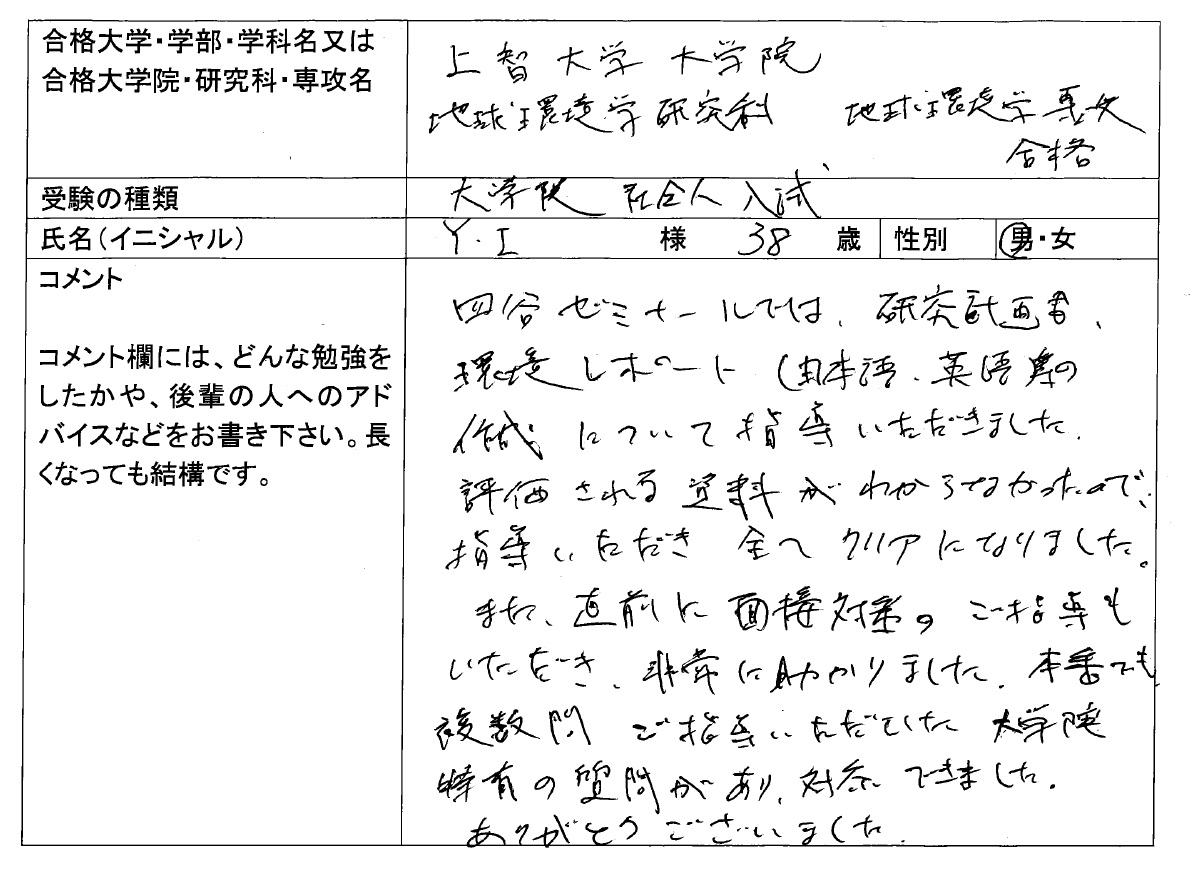 合格大学・学部・学科名又は
合格大学院・研究科・専攻名
上智大学 大学院
地球環境学研究科 地球環境学専攻
合格
受験の種類
大学院 社会人入試
氏名(イニシャル)
Y.I 様 38 歳 性別 男・女
コメント
コメント欄には、どんな勉強を
したかや、後輩の人へのアド
バイスなどをお書き下さい。長
くなっても結構です。
四谷ゼミナールでは、研究計画書、
環境レポート(日本語、英語)の
作成について指導いただきました。
評価される資料がわからなかったので、
指導いただき 全てクリアになりました。
また、直前に面接対策のご指導も
いただき、非常に助かりました。本番でも
複数問 ご指導いただいた 大学院
特有の質問があり、対応できました。
ありがとうございました。